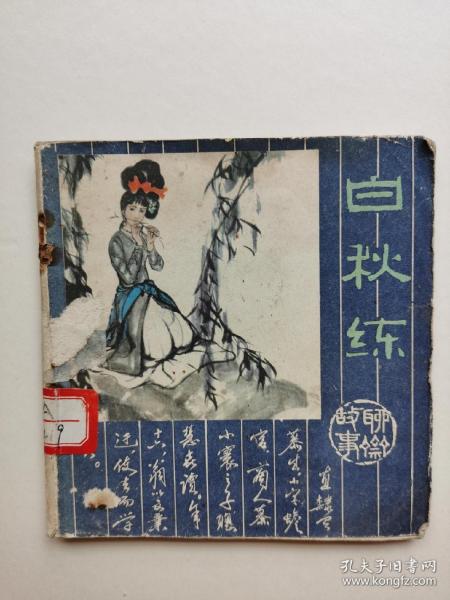 白秋练
聊齋
故事
直隸有
慕生小字蟾
宫，商人慕
小寰之子聰
慧喜读。年
十六，翁以文業
迂使去而学
A
9
孔夫子旧书网
www.kongfz.com